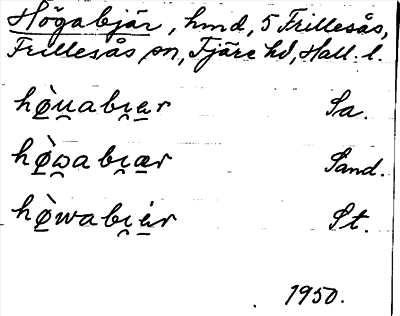 Högabjär, hmd, 5 Frillesås,
Frillesås sn, Fjäre hd, Hall. l.
hø̠̀u̠abi̯e̠r Sa.
hø̠̀ɷabi̯a̠r Sand.
hø̠̀wabi̯e̠r St.
1950.